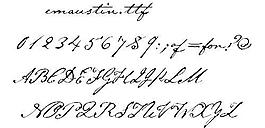 emaustin.ttf
0123456789:;of=for:?&
ABCDEFGHIJKLM
NOPQRSTUVWXYZ